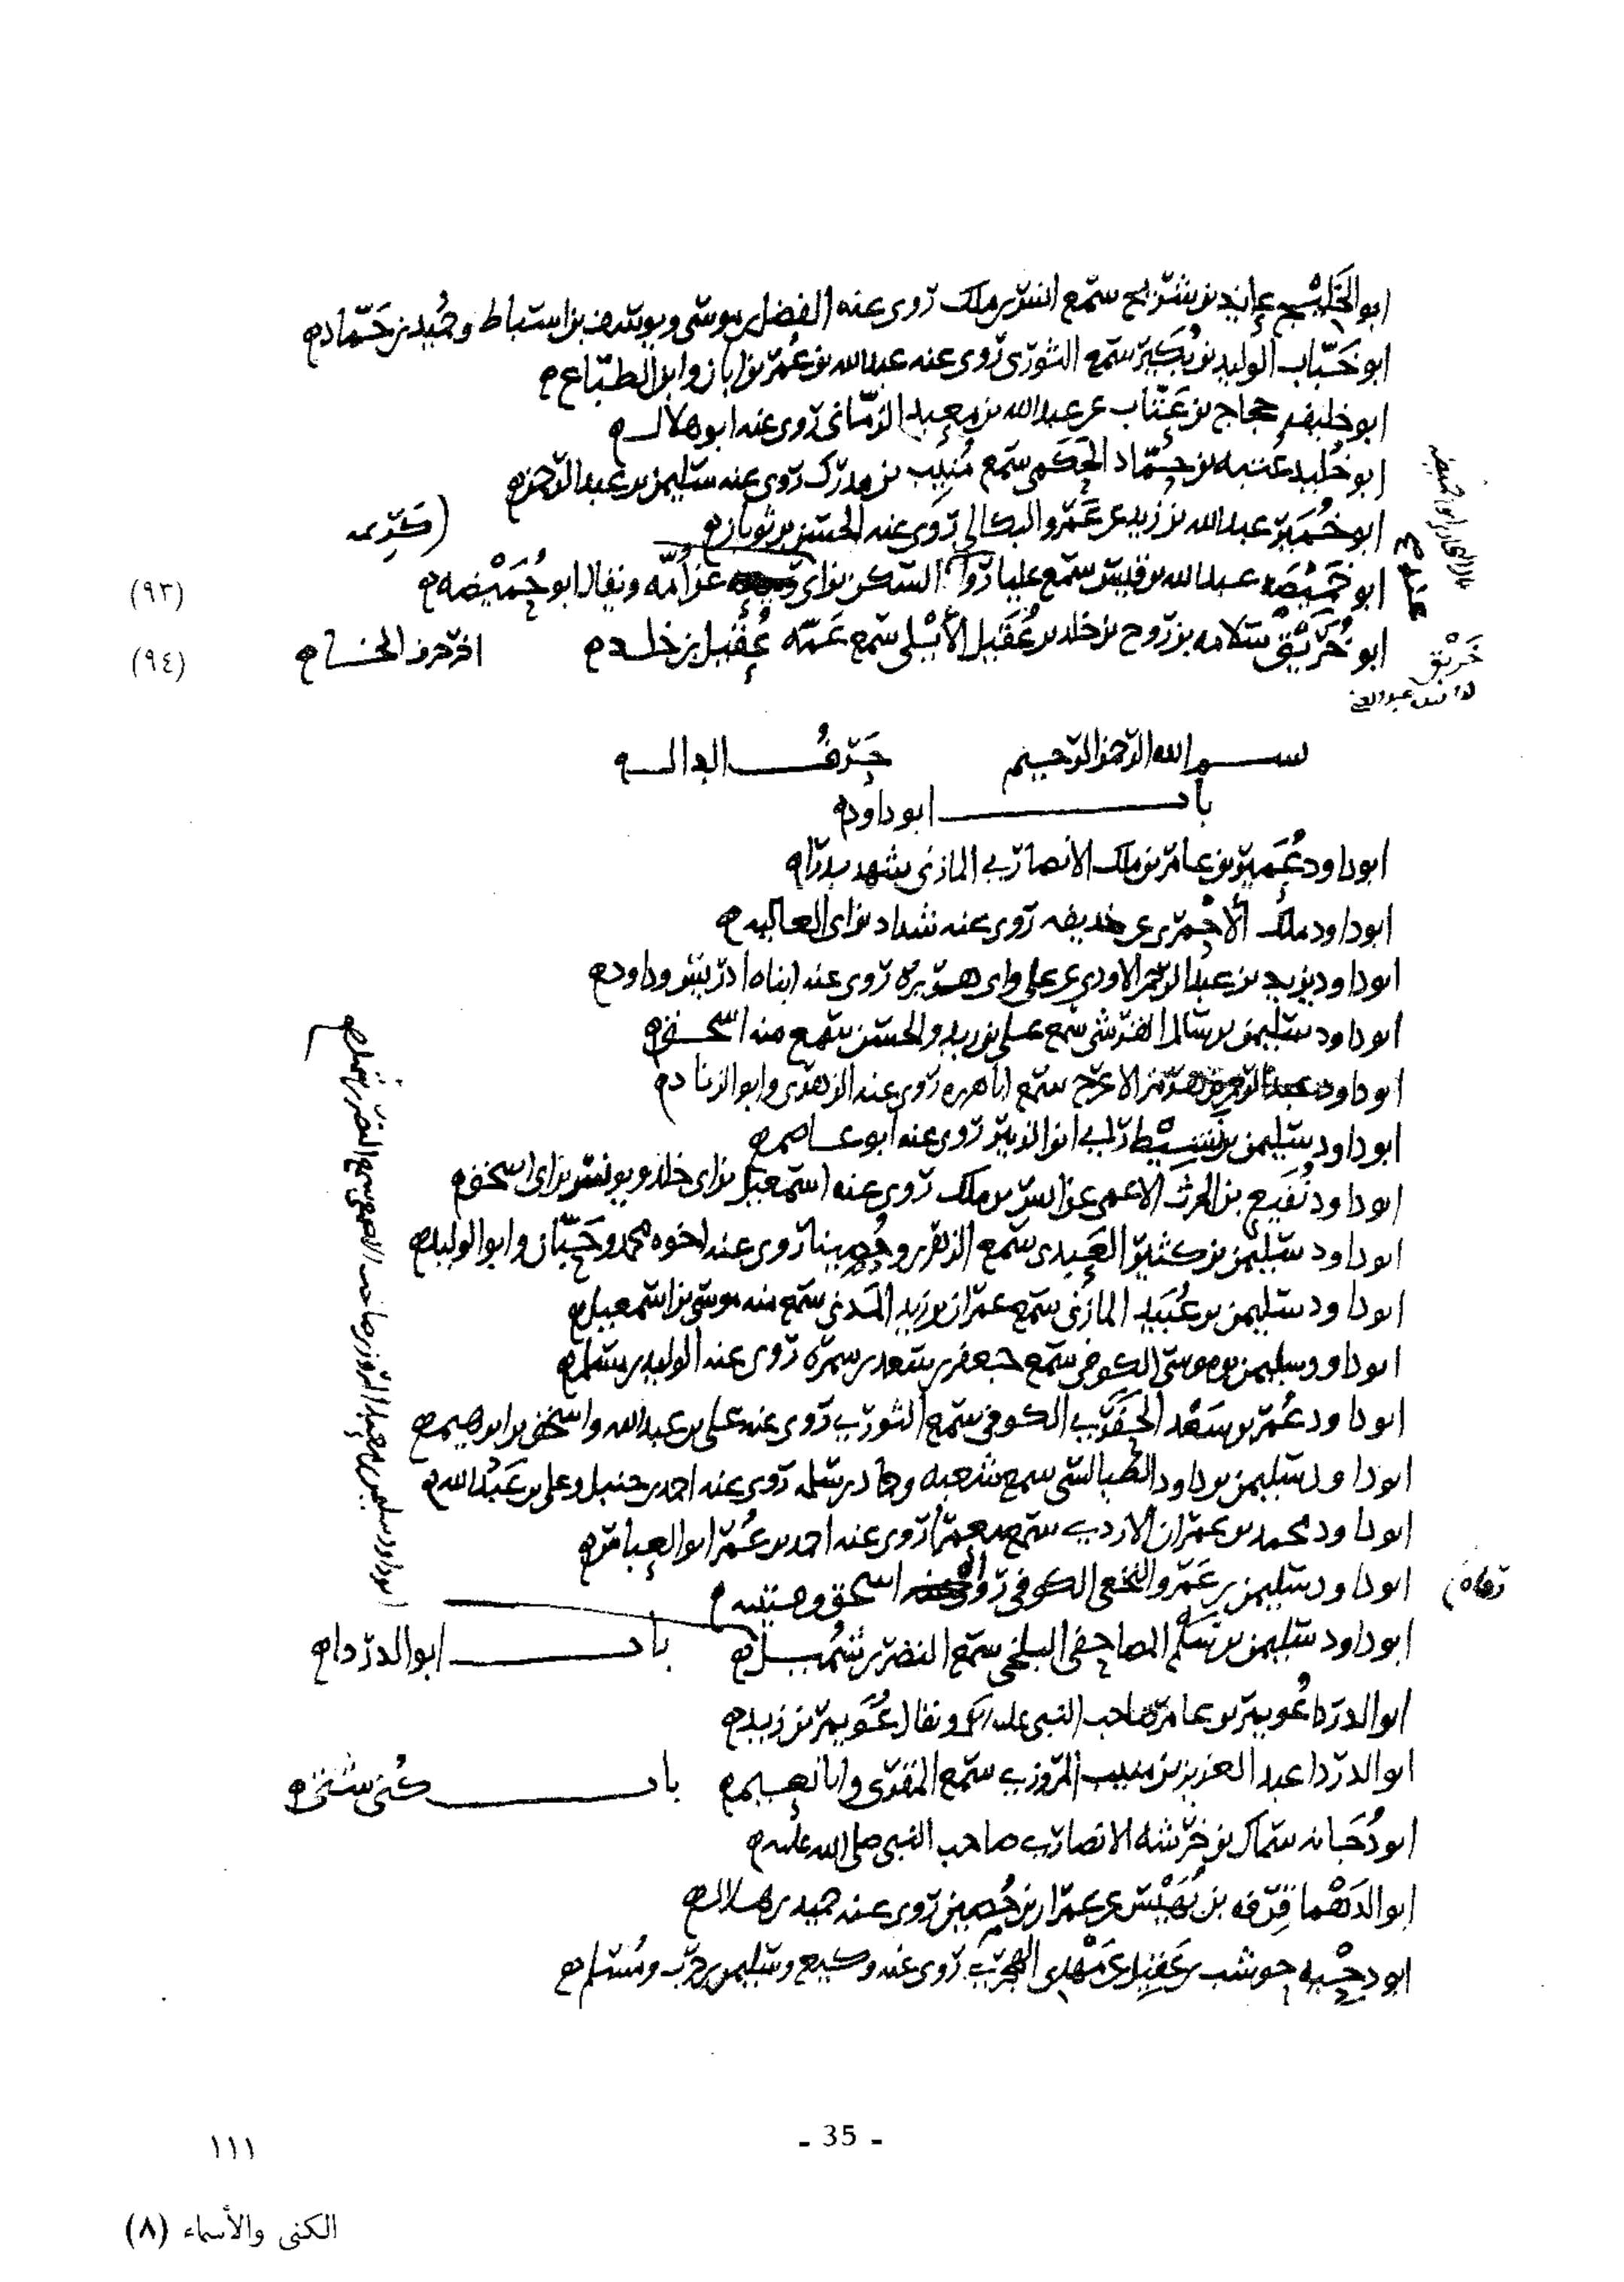 ابو الخليج عايذ بن شريح سمع انس بن ملك روى عنه الفضل بن موسى ويوسف بن اسباط وحميد بن حماد
ابو خباب الوليد بن بكير سمع الثورى روى عنه عبد الله بن عمر بن ابان وابن الطباع
ابو خليفه حجاج بن عتاب عن عبد الله بن معبد الزمانى روى عنه ابو هلال
ابو خليد عتبه بن حماد الحكمى سمع منيب بن مدرك روى عنه سليمن بن عبد الرحمن
ابو خمير عبد الله بن زيد عن عمرو البكالى روى عنه الحسن بن ثوبان
ابو خميصه عبد الله بن قيس سمع عليا روى السكن بن ابى عن امه ويقال ابو حميضه
(٩٣)
ابو خريق سلامه بن روح بن خلد بن عقيل الأيلى سمع عمه عقيل بن خلد اخر حرف الخا
(٩٤)
خريق
بسم الله الرحمن الرحيم حرف الدال
باب ابو داود
ابو داود عمير بن عامر بن ملك الانصارى المازنى شهد بدرا
ابو داود ملك الأحمرى عن حذيفه روى عنه شداد بن ابى العاليه
ابو داود يزيد بن عبد الرحمن الاودى عن على وابى هريره روى عنه ابناه ادريس وداود
ابو داود سليمن بن سالم القرشى سمع على بن زيد والحسن سمع منه اسحق
ابو داود عبد الرحمن بن هرمز الاعرج سمع اباهريره روى عنه الزهرى وابو الزناد
ابو داود سليمن بن نشيط راى ابن الزبير روى عنه ابو عاصم
ابو داود نفيع بن الحرث الاعمى عن انس بن ملك روى عنه اسمعيل بن ابى خلد ويونس بن ابى اسحق
ابو داود سليمن بن كثير العبدى سمع الزهرى وحصينا روى عنه اخوه محمد وحبان وابو الوليد
ابو داود سليمن بن عبيد المازنى سمع عمران بن زيد المدنى سمع منه موسى بن اسمعيل
ابو داود سليمن بن موسى الكوفى سمع جعفر بن سعد بن سمره روى عنه الوليد بن مسلم
ابو داود عمر بن سعد الحفرى الكوفى سمع الثورى روى عنه على بن عبد الله واسحق بن ابرهيم
ابو داود سليمن بن داود الطيالسى سمع شعبه وحماد بن سلمه روى عنه احمد بن حنبل وعلى بن عبد الله
ابو داود محمد بن عمران الازدى سمع معمرا روى عنه احمد بن عمر ابو العباس
ابو داود سليمن بن عمرو النخعى الكوفى اسحق وقتيبه
ابو داود سليمن بن سلم المصاحفى البلخى سمع النضر بن شميل باب ابو الدرداء
ابو الدردا عويمر بن عامر صاحب النبى عليه السلم ويقال عويمر بن زيد
ابو الدردا عبد العزيز بن منيب المروزى سمع المقرى وابا نعيم باب كنى شتى
ابو دجانه سماك بن خرشه الانصارى صاحب النبى صلى الله عليه
ابو الدهما قرفه بن بهيس عن عمران بن حصين روى عنه حميد بن هلال
ابو دحيه حوشب بن عقيل عن مهدى الهجرى روى عنه وكيع وسليمن بن حرب ومسلم
- 35 -
١١١
الكنى والأسماء (٨)